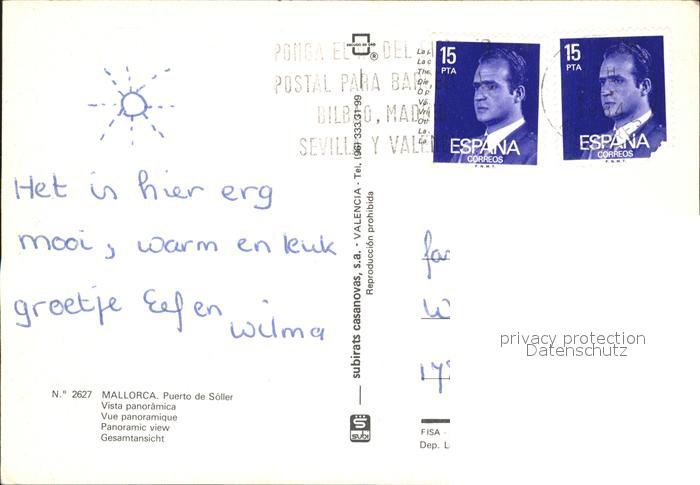 PONGA EL N.º DEL
POSTAL PARA
BILBAO, MADRID
SEVILLA Y VALENCIA
15
PTA
ESPAÑA
CORREOS
F.N.M.T.
15
PTA
ESPAÑA
CORREOS
F.N.M.T.
Het is hier erg
mooi, warm en leuk
groetje Eef en
Wilma
fa
W
179
privacy protection
Datenschutz
N.º 2627 MALLORCA. Puerto de Sóller
Vista panorâmica
Vue panoramique
Panoramic view
Gesamtansicht
subirats casanovas, s.a. - VALENCIA - Tel. (96) 333 31 99
Reproducción prohibida
®
SUBI
FISA -
Dep. L